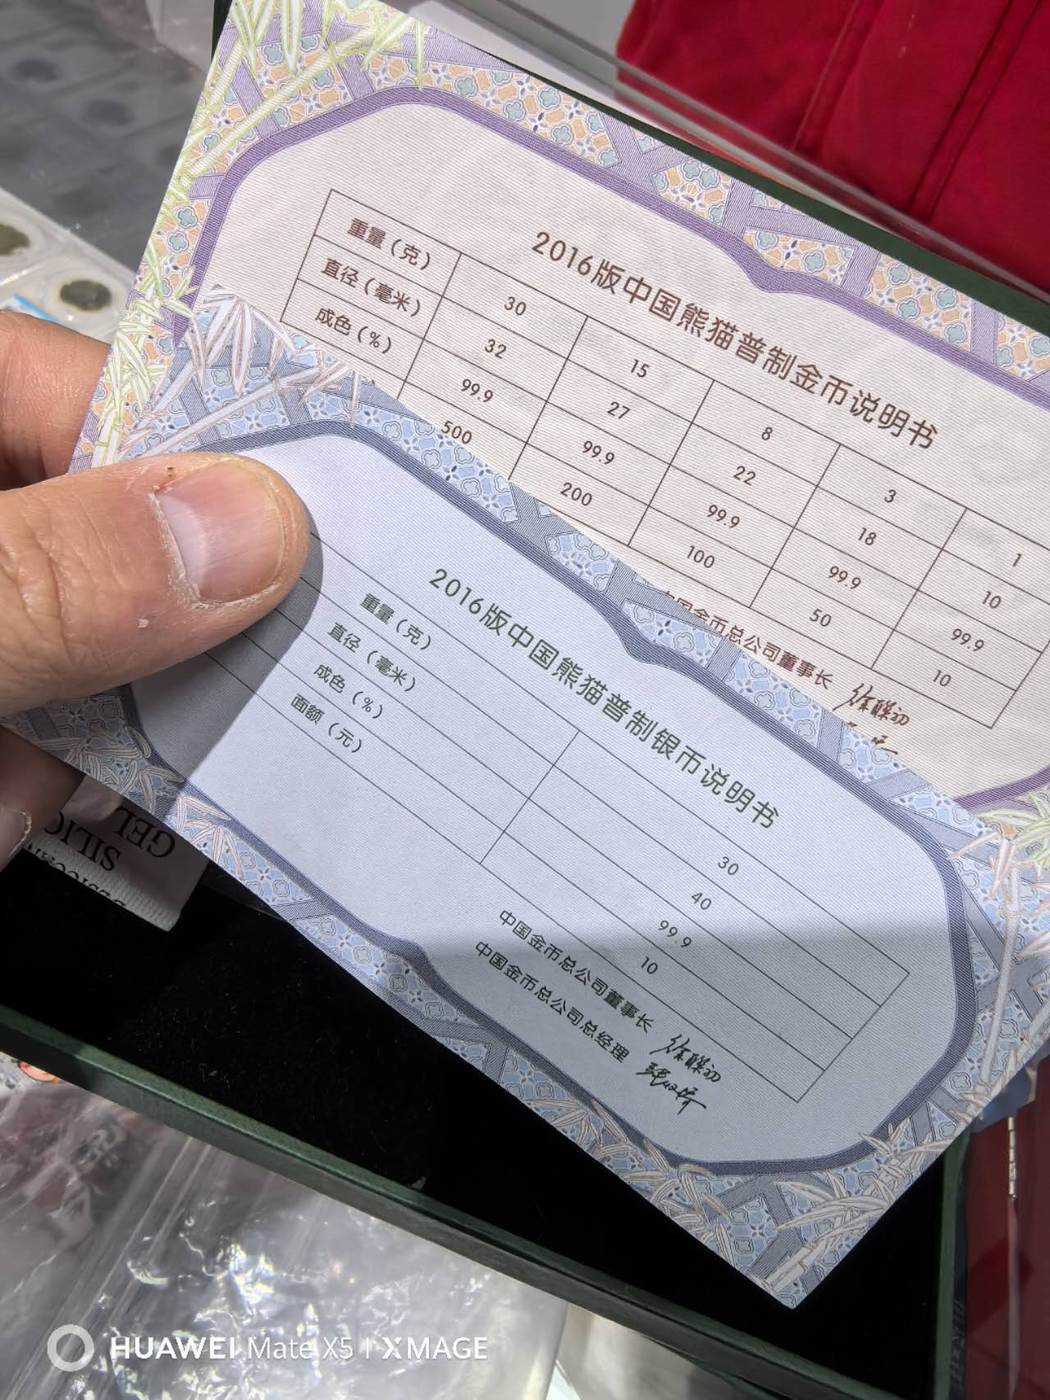 2016版中国熊猫普制金币说明书
重量（克） 30 15 8 3 1
直径（毫米） 32 27 22 18 10
成色（%） 99.9 99.9 99.9 99.9 99.9
500 200 100 50 10
中国金币总公司董事长 徐联初
2016版中国熊猫普制银币说明书
重量（克） 30
直径（毫米） 40
成色（%） 99.9
面额（元） 10
中国金币总公司董事长 徐联初
中国金币总公司总经理
SILIC
GEL
HUAWEI Mate X5 | XMAGE